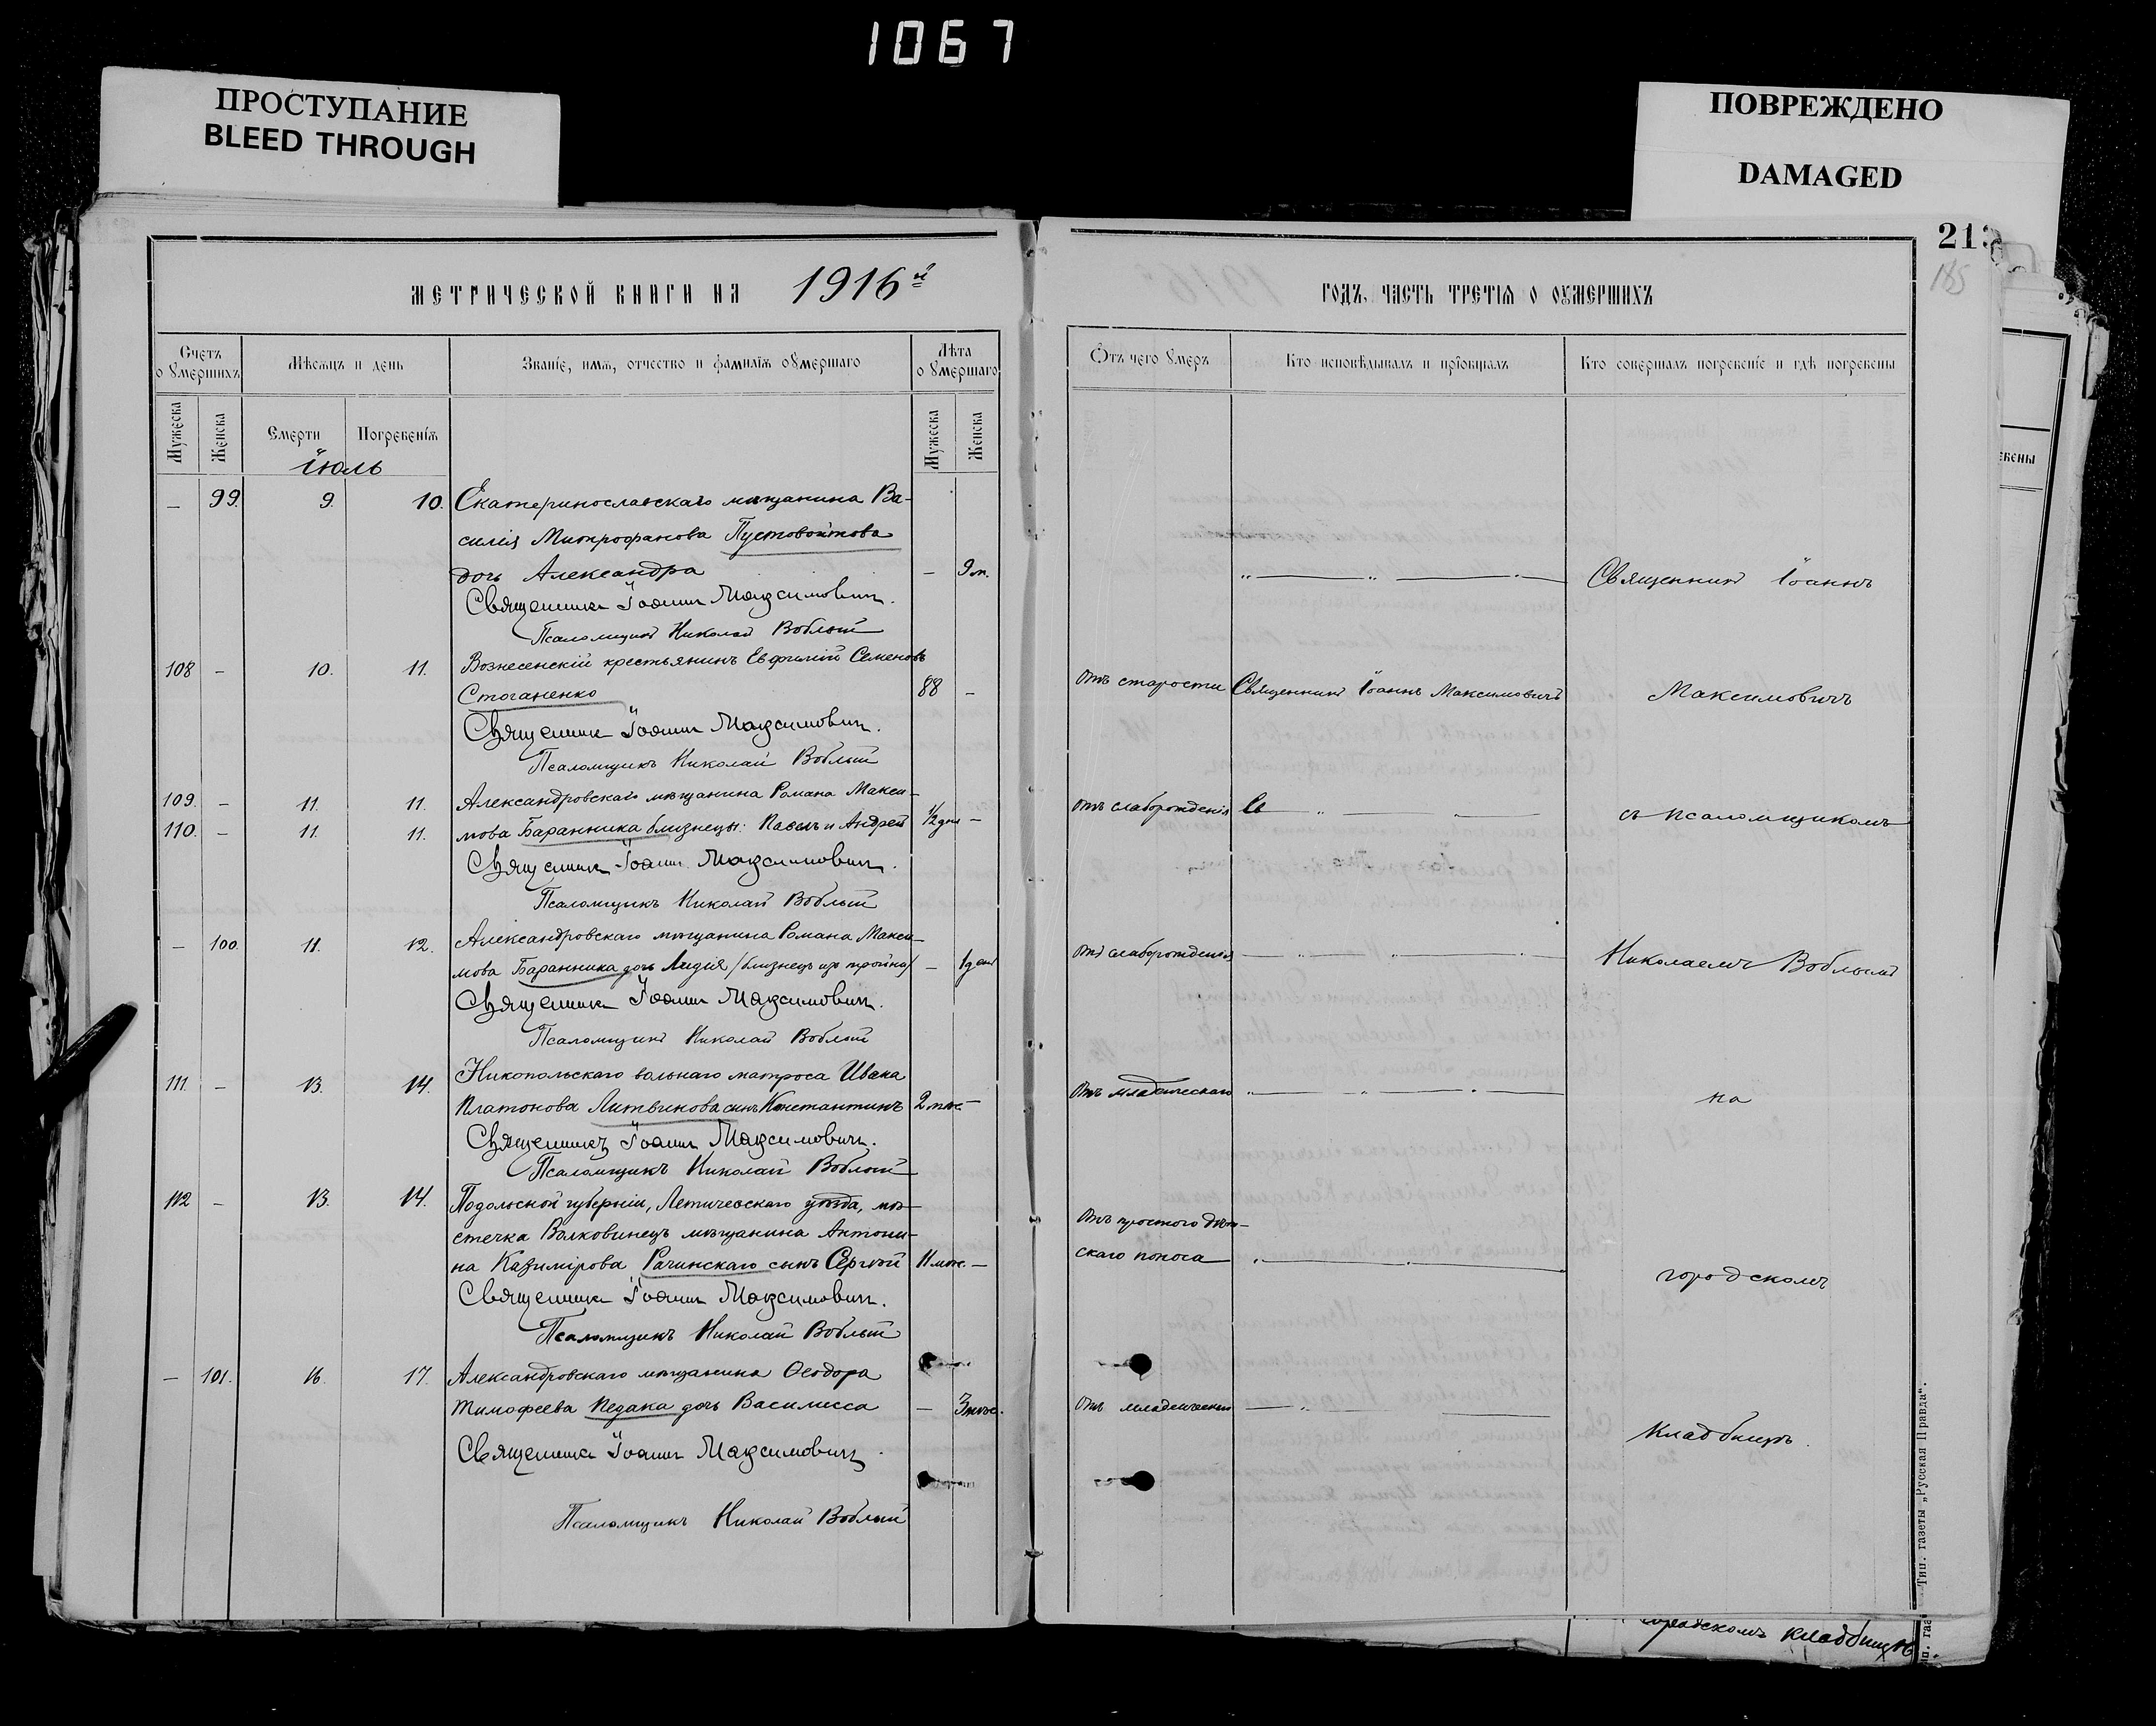 1067
ПРОСТУПАНИЕ
BLEED THROUGH
ПОВРЕЖДЕНО
DAMAGED
213
185
МЕТРИЧЕСКОЙ КНИГИ НА 1916й
ГОДЪ, ЧАСТЬ ТРЕТІЯ О ОУМЕРШИХЪ
Счетъ о умершихъ
Мѣсяцъ и день
Званіе, имя, отчество и фамилія оумершаго
Лѣта о умершаго
Мужеска
Женска
Смерти
Погребенія
Мужеска
Женска
Отъ чего умеръ
Кто исповѣдывалъ и пріобщалъ
Кто совершалъ погребеніе и гдѣ погребены
Іюль
— 99. 9. 10. Екатеринославскаго мѣщанина Ва-
силія Митрофанова Пустовойтова
дочь Александра — 9 м.
Священникъ Іоаннъ Максимович.
Псаломщикъ Николай Воблый
108 — 10. 11. Вознесенскій крестьянинъ Евфимій Семеновъ
Стоганенко 88 —
Священникъ Іоаннъ Максимович.
Псаломщикъ Николай Воблый
109. — 11. 11. Александровскаго мѣщанина Романа Макси-
110. — 11. 11. мова Баранника близнецы: Павелъ и Андрей 1/2 дня —
Священникъ Іоаннъ Максимович.
Псаломщикъ Николай Воблый
— 100. 11. 12. Александровскаго мѣщанина Романа Макси-
мова Баранника дочь Лидія /близнецъ изъ тройна/ — 1 день
Священникъ Іоаннъ Максимович.
Псаломщикъ Николай Воблый
111. — 13. 14. Никопольскаго вольнаго матроса Ивана
Платонова Литвинова сынъ Константинъ 2 мѣс. —
Священникъ Іоаннъ Максимович.
Псаломщикъ Николай Воблый
112 — 13. 14. Подольской губерніи, Летичевскаго уѣзда, мѣ-
стечка Волковинецъ мѣщанина Антони-
на Казимірова Рачинскаго сынъ Сергѣй 11 мѣс. —
Священникъ Іоаннъ Максимович.
Псаломщикъ Николай Воблый
— 101. 16. 17. Александровскаго мѣщанина Ѳеодора
Тимофеева Педака дочь Василисса — 3 мѣс.
Священникъ Іоаннъ Максимович.
Псаломщикъ Николай Воблый
Священникъ Іоаннъ
Отъ старости Священникъ Іоаннъ Максимовичъ Максимовичъ
Отъ слаборожденія съ псаломщикомъ
Отъ слаборожденія Николаемъ Воблымъ
Отъ младенческаго на
Отъ простого дѣт-
скаго поноса
городскомъ
Отъ младенческой
кладбищѣ.
Тип. газеты „Русская Правда“.
городскомъ кладбищѣ